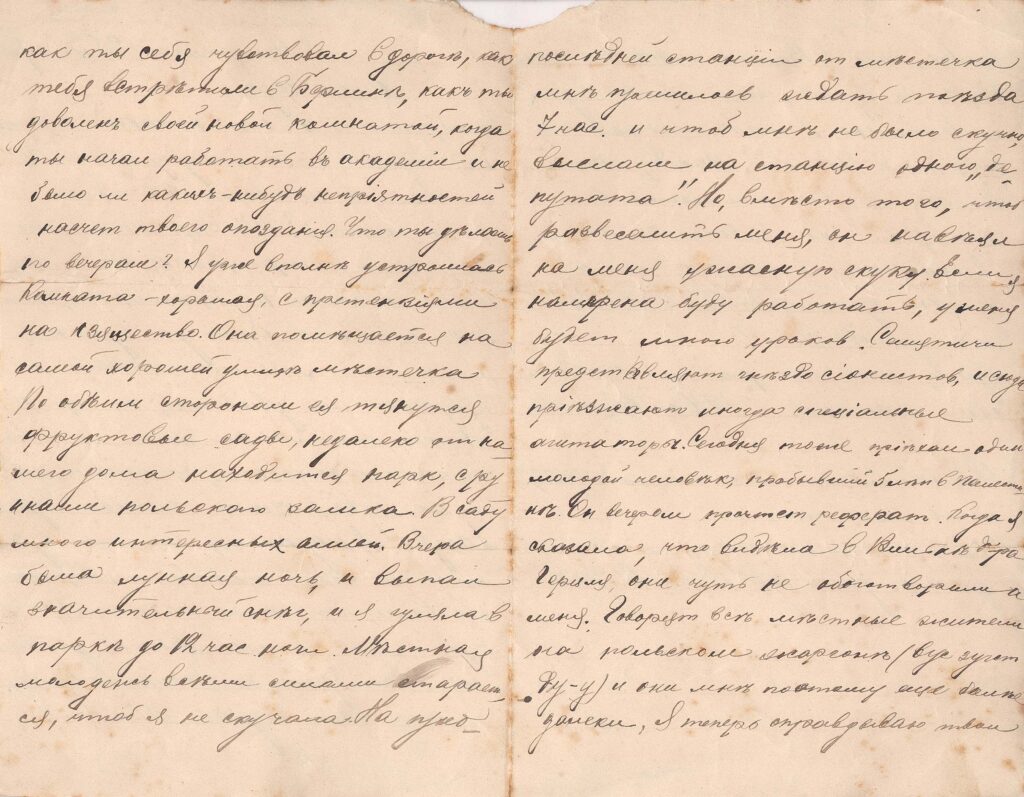 какъ ты себя чувствовал в дорогѣ, какъ
тебя встрѣтили в Берлинѣ, какъ ты
доволенъ своей новой комнатой, когда
ты начал работать въ академіи и не
было ли какихъ-нибудь непріятностей
насчет твоего опозданія. Что ты дѣлаешь
по вечерам? Я уже вполнѣ устроилась
Комната - хорошая, с претензіями
на изящество. Она помѣщается на
самой хорошей улицѣ мѣстечка
По обѣим сторонам ея тянутся
фруктовые сады, недалеко от на
шего дома находится парк, с ру
инами польского замка. В саду
много интересных аллей. Вчера
была лунная ночь, и выпал
значительный снѣг, и я гуляла в
паркѣ до 12 час. ночи. Мѣстная
молодежь всѣми силами старает-
ся, чтоб я не скучала. На пред-
послѣдней станціи от мѣстечка
мнѣ пришлось ждать поѣзда
7 час. и чтоб мнѣ не было скучно,
выслали на станцію одного „де
путата". Но, вмѣсто того, чтоб
развеселить меня, он навѣял
на меня ужасную скуку. Если я
намѣрена буду работать, у меня
будет много уроков. Сашетичи
представляют гнѣздо сіонистов, и сюда
пріѣзжают иногда спеціальные
агитаторы. Сегодня тоже пріѣхал один
молодой человѣкъ, пробывшій 5 лѣт в Палести
нѣ. Он вечером прочтет реферат. Когда я
сказала, что видѣла в Вильнѣ д-ра
Герцля, они чуть не обоготворили
меня. Говорят всѣ мѣстные жители
на польском жаргонѣ (вус зугт
ду-у) и они мнѣ поэтому еще болѣе
далеки. Я теперь оправдываю твои